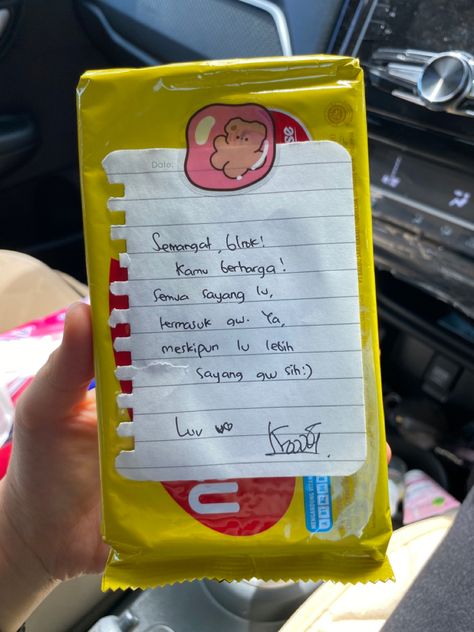 Date:
Semangat, blok!
Kamu berharga!
Semua sayang lu,
termasuk gw. Ya,
meskipun lu lebih
sayang gw sih:)
Luv